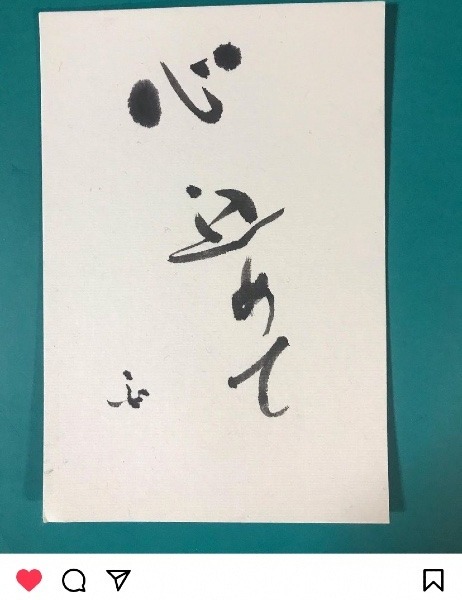 心込めて